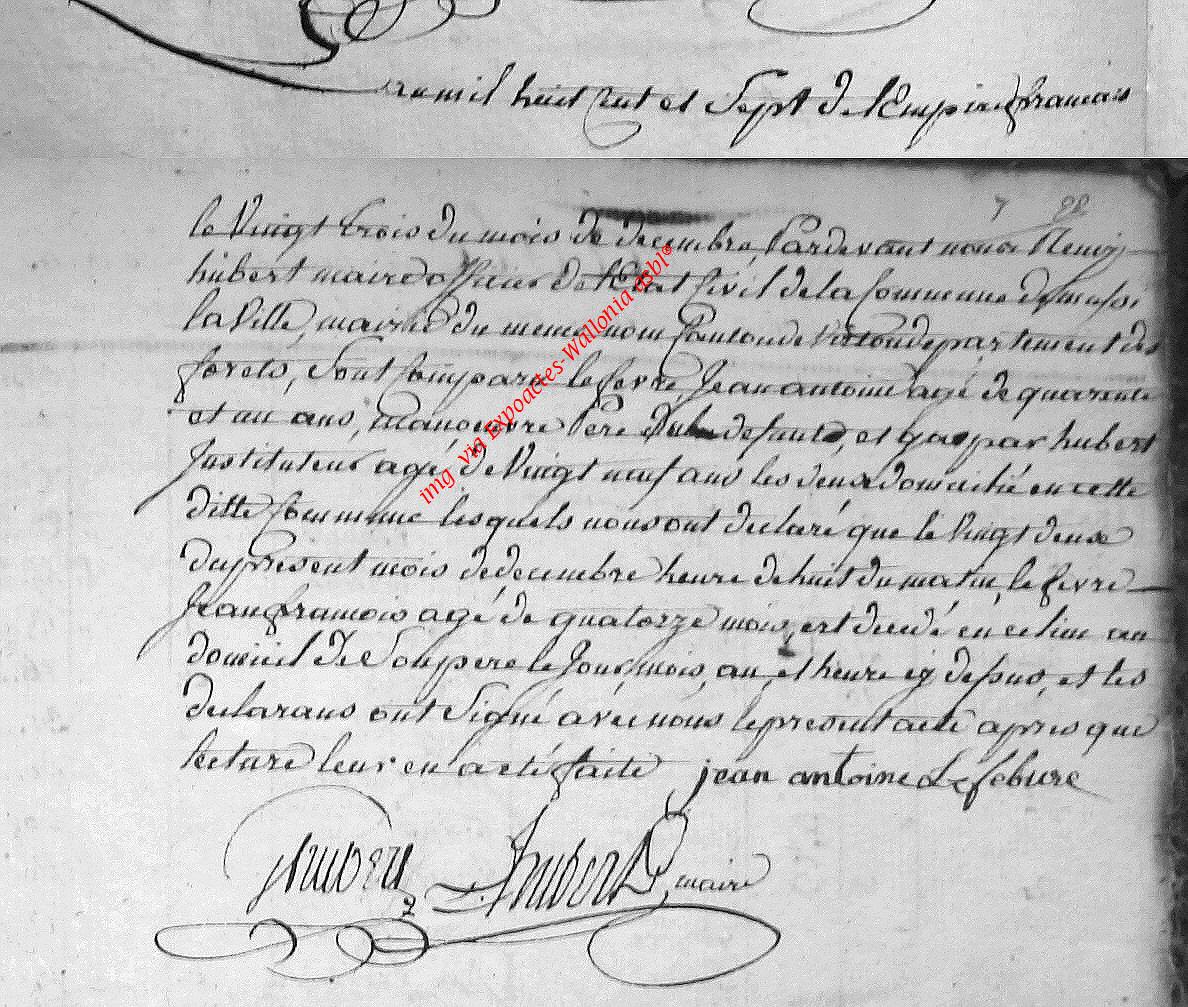 an mil huit cent et Sept de l'Empire francais
7 98
le Vingt trois du mois de decembre, Pardevant nous Remy
hubert maire officier de l'Etat Civil de la Commune de mussi
la Ville, mairie du meme nom Canton de virton departement des
forets, Sont Comparu le fevre, Jean antoine agé de quarente
et un ans, manoeuvre Pere du defunt, et gaspar hubert
Instituteur agé de Vingt neuf ans les deux domicilié en cette
ditte Commune lesquels nous ont declaré que le Vingt deux
du present mois de decembre heure de huit du matin, le fevre
Jean francois agé de quatorze mois, est decedé en ce lieu au
domicil de Son pere le Jour, mois, an, et heure cy dessus, et les
declarans ont Signé avec nous le present acte apres que
lecture leur en a eté faite jean antoine Lefebvre
Hubert
Hubert maire
img via Expoactes-Wallonia asbl®